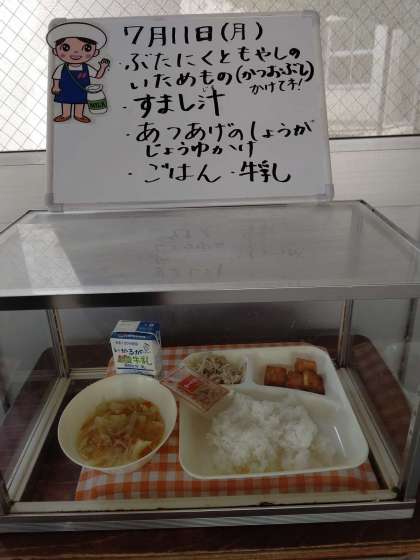 7月11日(月)
・ぶたにくともやしの
いためもの(かつおぶし)
かけてネ!
・すまし汁
・あつあげのしょうが
じょうゆかけ
・ごはん・牛乳
MILK
いかるが
牛乳